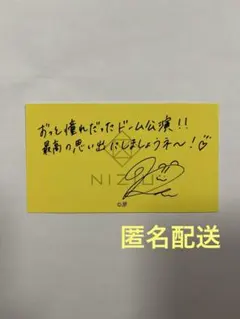 ずっと憧れだったドーム公演!!
最高の思い出にしましょうネ〜!♡
NIZIU
匿名配送